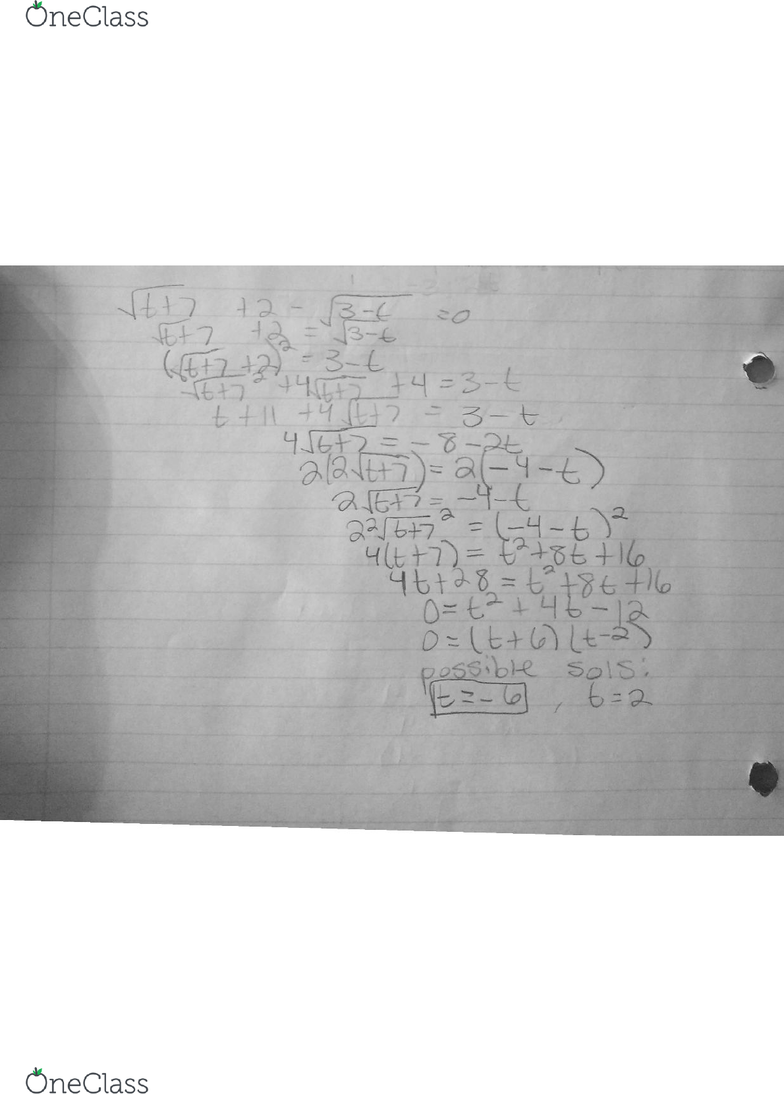 OneClass
√t+7 +2 - √3-t =0
√t+7 +2 = √3-t
(√t+7 +2)² = 3-t
√t+7² +4√t+7 +4 = 3-t
t+11 +4√t+7 = 3-t
4√t+7 = -8-2t
2(2√t+7) = 2(-4-t)
2√t+7 = -4-t
2²√t+7² = (-4-t)²
4(t+7) = t²+8t+16
4t+28 = t²+8t+16
0=t²+4t-12
0=(t+6)(t-2)
possible sols:
t=-6 , t=2
OneClass